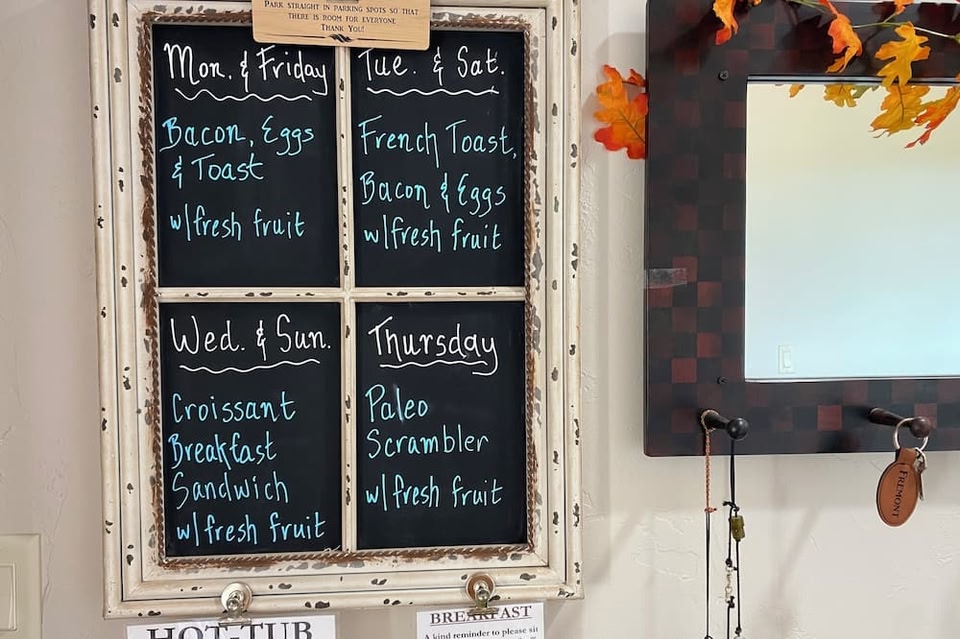 PARK STRAIGHT IN PARKING SPOTS SO THAT
THERE IS ROOM FOR EVERYONE
THANK YOU!
Mon. & Friday
Bacon, Eggs
& Toast
w/fresh fruit
Tue. & Sat.
French Toast,
Bacon & Eggs
w/fresh fruit
Wed. & Sun.
Croissant
Breakfast
Sandwich
w/fresh fruit
Thursday
Paleo
Scrambler
w/fresh fruit
FREMONT
HOT-TUB
BREAKFAST
A kind reminder to please sit